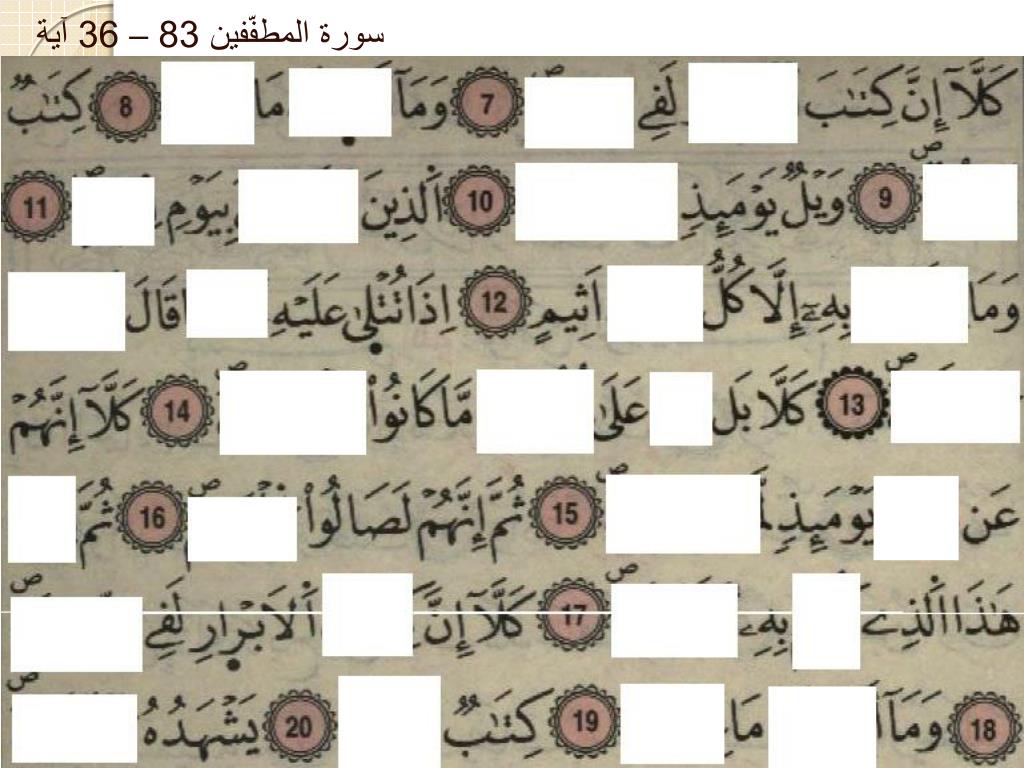 سورة المطفّفين 83 – 36 آية
كَلَّآ إِنَّ كِتَٰبَ لَفِے 7 وَمَآ مَا 8 كِتَٰبٌ
9 وَيْلٌ يَوْمَئِذٍ 10 اَ۬لذِينَ بِيَوْمِ 11
وَمَا بِهِۦٓ إِلَّا كُلُّ اَثِيمٍ 12 اِذَا تُتْلَىٰ عَلَيْهِ قَالَ
13 كَلَّا بَل عَلَىٰ مَّا كَانُواْ 14 كَلَّآ إِنَّهُمْ
عَن يَوْمَئِذٍ 15 ثُمَّ إِنَّهُمْ لَصَالُواْ 16 ثُمَّ
هَٰذَا اَ۬لذِے بِهِۦ 17 كَلَّآ إِنَّ اَ۬لَابْرِارِ لَفِے
18 وَمَآ مَا 19 كِتَٰبٌ 20 يَشْهَدُهُ